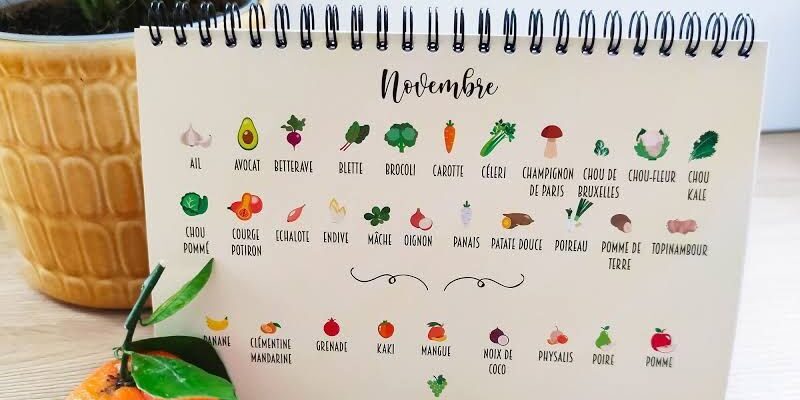 Novembre
AIL AVOCAT BETTERAVE BLETTE BROCOLI CAROTTE CÉLERI CHAMPIGNON DE PARIS CHOU DE BRUXELLES CHOU-FLEUR CHOU KALE
CHOU POMMÉ COURGE POTIRON ECHALOTE ENDIVE MÂCHE OIGNON PANAIS PATATE DOUCE POIREAU POMME DE TERRE TOPINAMBOUR
BANANE CLÉMENTINE MANDARINE GRENADE KAKI MANGUE NOIX DE COCO PHYSALIS POIRE POMME